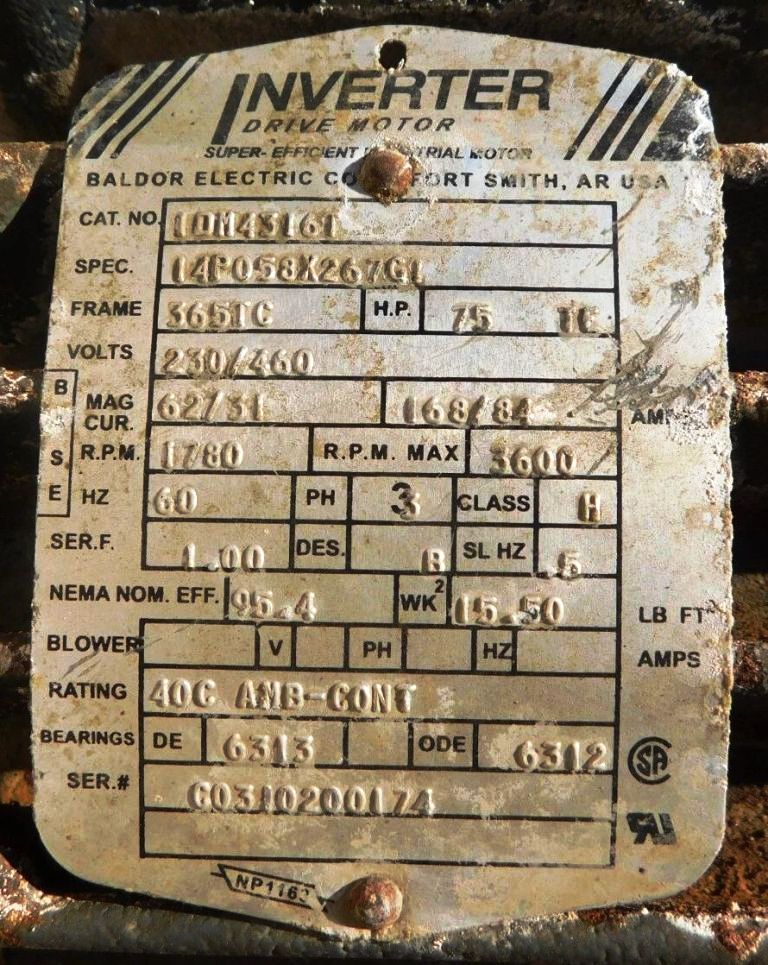 INVERTER
DRIVE MOTOR
SUPER-EFFICIENT INDUSTRIAL MOTOR
BALDOR ELECTRIC CO FORT SMITH, AR USA
CAT. NO. IDM43161
SPEC. 14P058X267G1
FRAME 365TC H.P. 75 TC
VOLTS 230/460
BASE
MAG CUR. 62/31 168/84 AM
R.P.M. 1780 R.P.M. MAX 3600
HZ 60 PH 3 CLASS H
SER.F. 1.00 DES. B SL HZ .5
NEMA NOM. EFF. 95.4 WK2 15.50 LB FT
BLOWER V PH HZ AMPS
RATING 40C AMB-CONT
BEARINGS DE 6313 ODE 6312
SA
SER.# C0310200174
RU